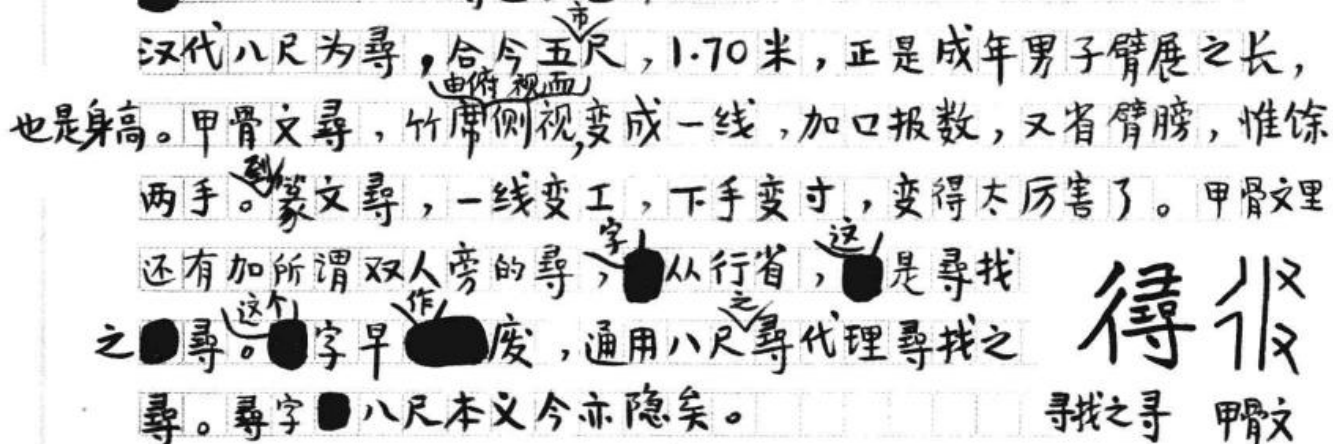 汉代八尺为尋，合今五市尺，1.70米，正是成年男子臂展之长，
也是身高。甲骨文尋，竹席由俯视而侧视，变成一线，加口报数，又省臂膀，惟馀
两手。到篆文尋，一线变工，下手变寸，变得太厉害了。甲骨文里
还有加所谓双人旁的尋，字从行省，这是尋找
之尋。这个字早作废，通用八尺之尋代理尋找之
尋。尋字八尺本义今亦隐矣。
寻找之寻 甲骨文